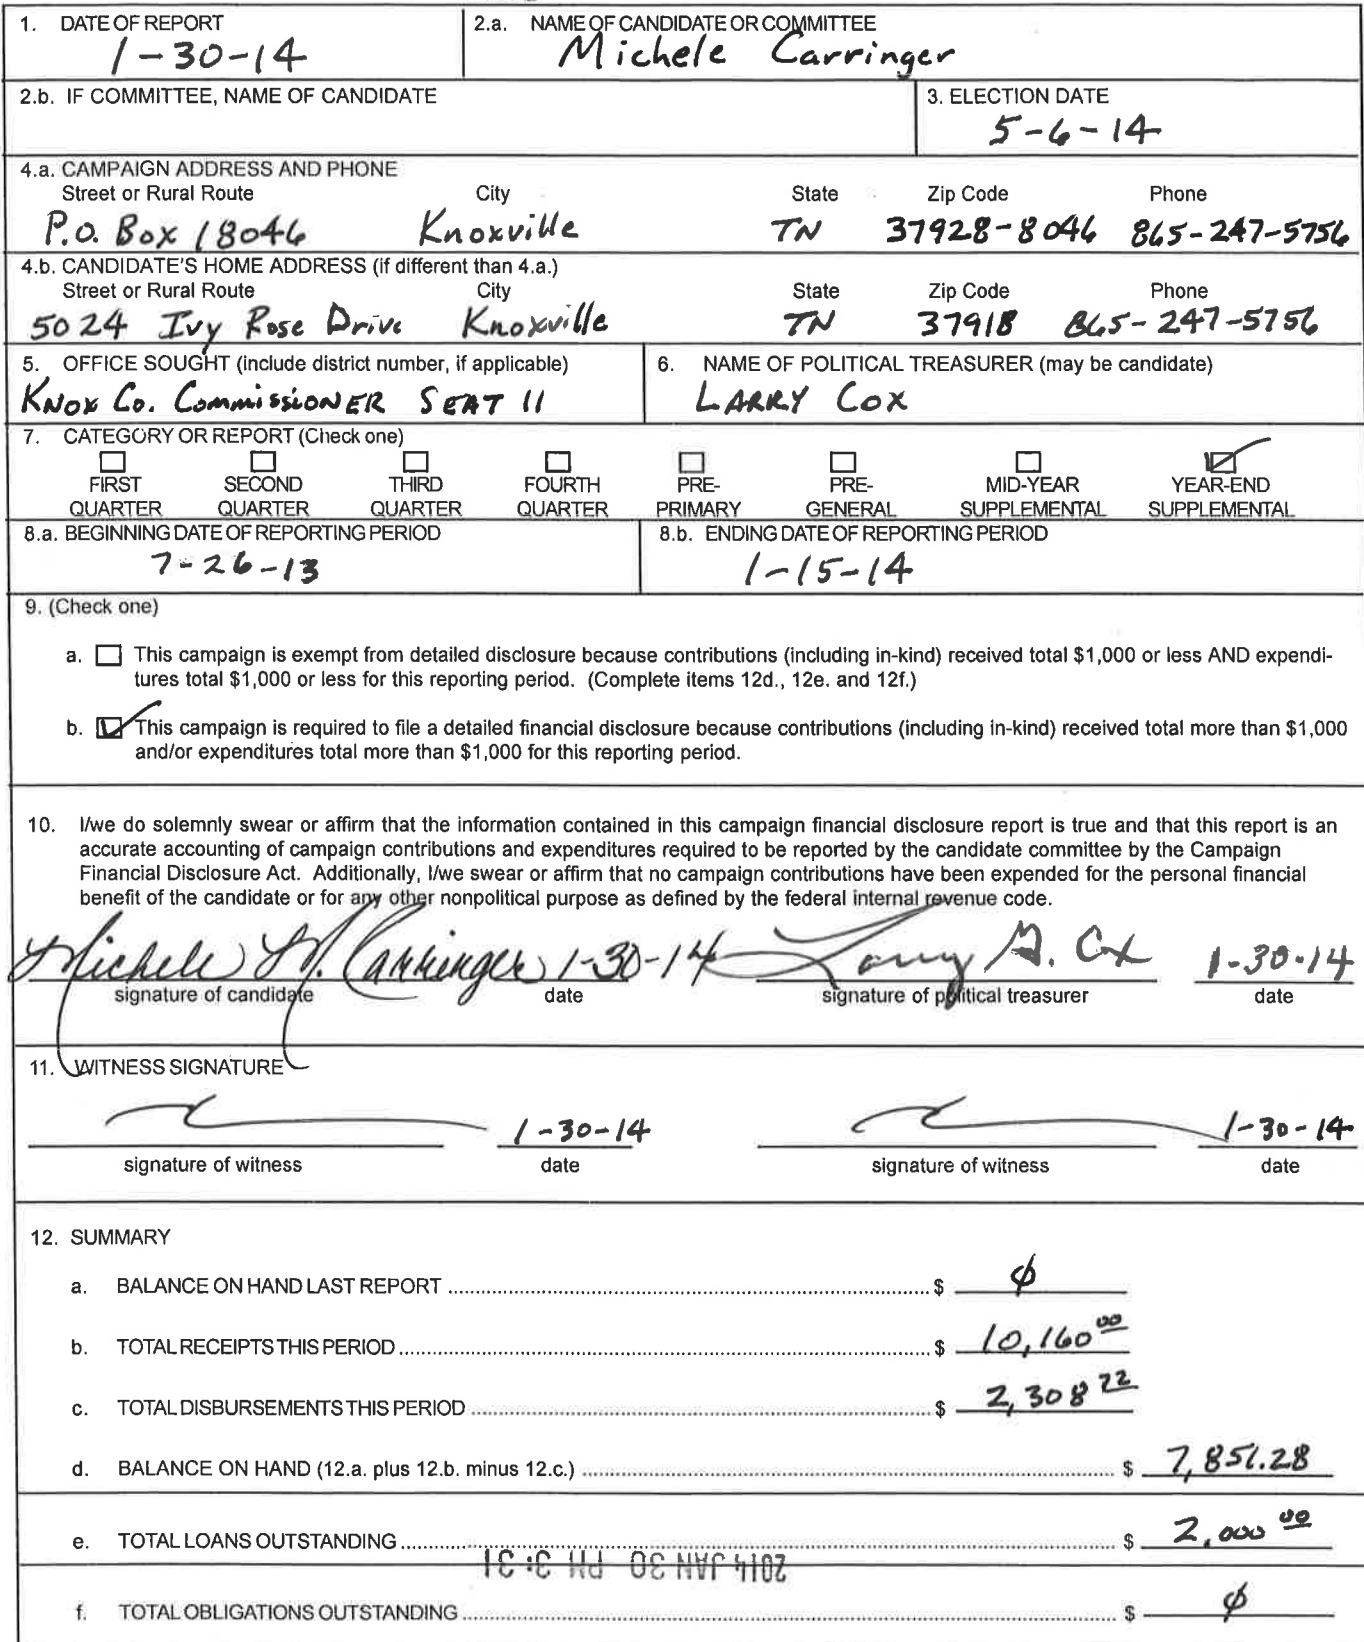 1. DATE OF REPORT
1-30-14
2.a. NAME OF CANDIDATE OR COMMITTEE
Michele Carringer
2.b. IF COMMITTEE, NAME OF CANDIDATE
3. ELECTION DATE
5-6-14
4.a. CAMPAIGN ADDRESS AND PHONE
Street or Rural Route City State Zip Code Phone
P.O. Box 18046 Knoxville TN 37928-8046 865-247-5756
4.b. CANDIDATE'S HOME ADDRESS (if different than 4.a.)
Street or Rural Route City State Zip Code Phone
5024 Ivy Rose Drive Knoxville TN 37918 865-247-5756
5. OFFICE SOUGHT (include district number, if applicable)
KNOX Co. COMMISSIONER SEAT 11
6. NAME OF POLITICAL TREASURER (may be candidate)
LARRY COX
7. CATEGORY OR REPORT (Check one)
FIRST QUARTER
SECOND QUARTER
THIRD QUARTER
FOURTH QUARTER
PRE-PRIMARY
PRE-GENERAL
MID-YEAR SUPPLEMENTAL
YEAR-END SUPPLEMENTAL
8.a. BEGINNING DATE OF REPORTING PERIOD
7-26-13
8.b. ENDING DATE OF REPORTING PERIOD
1-15-14
9. (Check one)
a. This campaign is exempt from detailed disclosure because contributions (including in-kind) received total $1,000 or less AND expendi-
tures total $1,000 or less for this reporting period. (Complete items 12d., 12e. and 12f.)
b. This campaign is required to file a detailed financial disclosure because contributions (including in-kind) received total more than $1,000
and/or expenditures total more than $1,000 for this reporting period.
10. I/we do solemnly swear or affirm that the information contained in this campaign financial disclosure report is true and that this report is an
accurate accounting of campaign contributions and expenditures required to be reported by the candidate committee by the Campaign
Financial Disclosure Act. Additionally, I/we swear or affirm that no campaign contributions have been expended for the personal financial
benefit of the candidate or for any other nonpolitical purpose as defined by the federal internal revenue code.
Michele M. Carringer 1-30-14 Larry A. Cox 1-30-14
signature of candidate date signature of political treasurer date
11. WITNESS SIGNATURE
1-30-14 1-30-14
signature of witness date signature of witness date
12. SUMMARY
a. BALANCE ON HAND LAST REPORT $ ϕ
b. TOTAL RECEIPTS THIS PERIOD $ 10,160 00
c. TOTAL DISBURSEMENTS THIS PERIOD $ 2,308 72
d. BALANCE ON HAND (12.a. plus 12.b. minus 12.c.) $ 7,851.28
e. TOTAL LOANS OUTSTANDING $ 2,000 00
2014 JAN 30 PM 3:31
f. TOTAL OBLIGATIONS OUTSTANDING $ ϕ